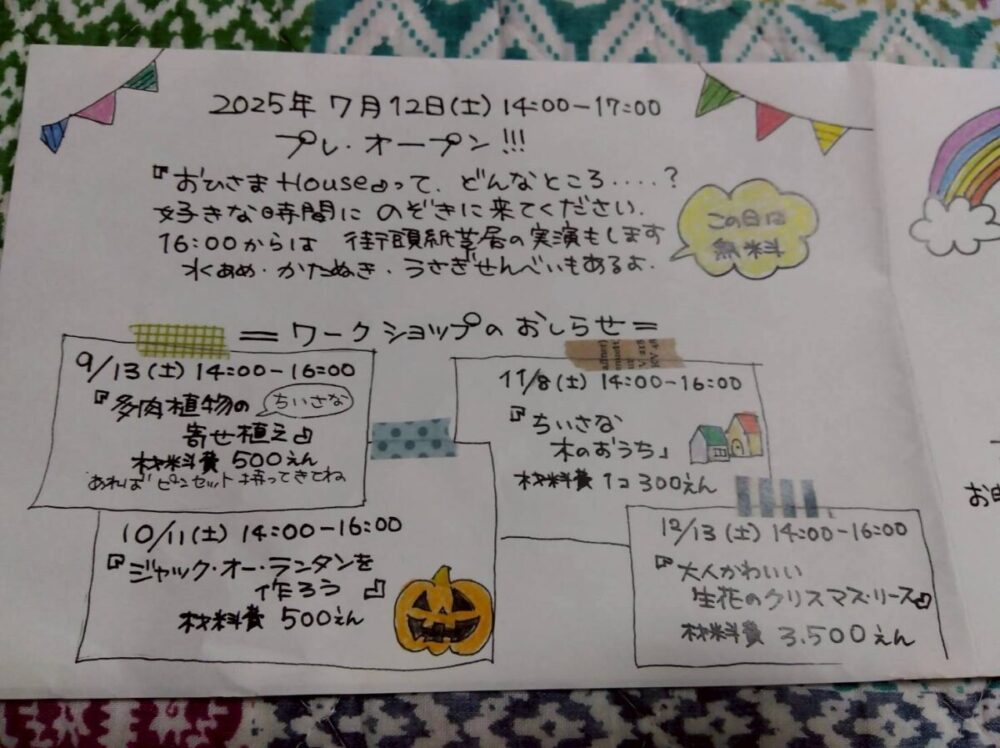 2025年 7月12日(土) 14:00-17:00
プレ・オープン!!!
『おひさまHouse』って、どんなところ....?
好きな時間に のぞきに来てください.
16:00からは 街頭紙芝居の実演もします
水あめ・かたぬき・うさぎせんべいもあるよ.
この日は
無料
=ワークショップのおしらせ=
9/13(土) 14:00-16:00
『多肉植物の ちいさな
寄せ植え』
材料費 500えん
あれば ピンセット 持ってきてね
11/8(土) 14:00-16:00
『ちいさな
木のおうち』
材料費 1コ 300えん
10/11(土) 14:00-16:00
『ジャック・オー・ランタンを
作ろう』
材料費 500えん
12/13(土) 14:00-16:00
『大人かわいい
生花のクリスマス・リース』
材料費 3,500えん